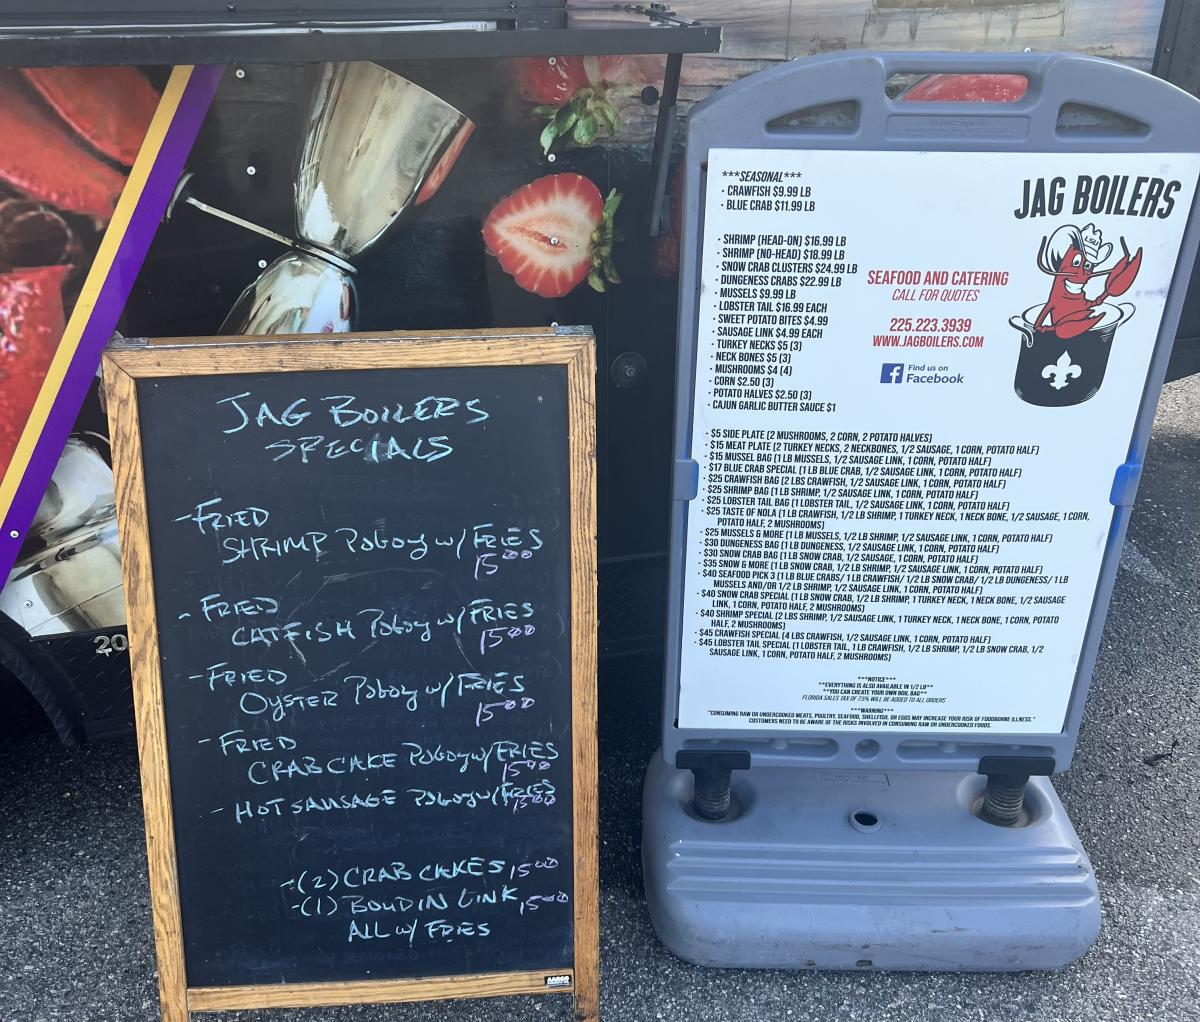 JAG BOILERS
SPECIALS
- FRIED
SHRIMP PoBoy w/ FRIES
15⁰⁰
- FRIED
CATFISH PoBoy w/ FRIES
15⁰⁰
- FRIED
OYSTER PoBoy w/ FRIES
15⁰⁰
- FRIED
CRAB CAKE PoBoy w/ FRIES
15⁰⁰
- HOT SAUSAGE PoBoy w/ FRIES
15⁰⁰
- (2) CRAB CAKES 15⁰⁰
- (1) BOUDIN LINK 15⁰⁰
ALL w/ FRIES
20
JAG BOILERS
LSU
***SEASONAL***
· CRAWFISH $9.99 LB
· BLUE CRAB $11.99 LB
· SHRIMP (HEAD-ON) $16.99 LB
· SHRIMP (NO-HEAD) $18.99 LB
· SNOW CRAB CLUSTERS $24.99 LB
· DUNGENESS CRABS $22.99 LB
· MUSSELS $9.99 LB
· LOBSTER TAIL $16.99 EACH
· SWEET POTATO BITES $4.99
· SAUSAGE LINK $4.99 EACH
· TURKEY NECKS $5 (3)
· NECK BONES $5 (3)
· MUSHROOMS $4 (4)
· CORN $2.50 (3)
· POTATO HALVES $2.50 (3)
· CAJUN GARLIC BUTTER SAUCE $1
SEAFOOD AND CATERING
CALL FOR QUOTES
225.223.3939
WWW.JAGBOILERS.COM
f Find us on
Facebook
· $5 SIDE PLATE (2 MUSHROOMS, 2 CORN, 2 POTATO HALVES)
· $15 MEAT PLATE (2 TURKEY NECKS, 2 NECKBONES, 1/2 SAUSAGE, 1 CORN, POTATO HALF)
· $15 MUSSEL BAG (1 LB MUSSELS, 1/2 SAUSAGE LINK, 1 CORN, POTATO HALF)
· $17 BLUE CRAB SPECIAL (1 LB BLUE CRAB, 1/2 SAUSAGE LINK, 1 CORN, POTATO HALF)
· $25 CRAWFISH BAG (2 LBS CRAWFISH, 1/2 SAUSAGE LINK, 1 CORN, POTATO HALF)
· $25 SHRIMP BAG (1 LB SHRIMP, 1/2 SAUSAGE LINK, 1 CORN, POTATO HALF)
· $25 LOBSTER TAIL BAG (1 LOBSTER TAIL, 1/2 SAUSAGE LINK, 1 CORN, POTATO HALF)
· $25 TASTE OF NOLA (1 LB CRAWFISH, 1/2 LB SHRIMP, 1 TURKEY NECK, 1 NECK BONE, 1/2 SAUSAGE, 1 CORN,
POTATO HALF, 2 MUSHROOMS)
· $25 MUSSELS & MORE (1 LB MUSSELS, 1/2 LB SHRIMP, 1/2 SAUSAGE LINK, 1 CORN, POTATO HALF)
· $30 DUNGENESS BAG (1 LB DUNGENESS, 1/2 SAUSAGE LINK, 1 CORN, POTATO HALF)
· $30 SNOW CRAB BAG (1 LB SNOW CRAB, 1/2 SAUSAGE, 1 CORN, POTATO HALF)
· $35 SNOW & MORE (1 LB SNOW CRAB, 1/2 LB SHRIMP, 1/2 SAUSAGE LINK, 1 CORN, POTATO HALF)
· $40 SEAFOOD PICK 3 (1 LB BLUE CRABS/ 1 LB CRAWFISH/ 1/2 LB SNOW CRAB/ 1/2 LB DUNGENESS/ 1 LB
MUSSELS AND/OR 1/2 LB SHRIMP, 1/2 SAUSAGE LINK, 1 CORN, POTATO HALF)
· $40 SNOW CRAB SPECIAL (1 LB SNOW CRAB, 1/2 LB SHRIMP, 1 TURKEY NECK, 1 NECK BONE, 1/2 SAUSAGE
LINK, 1 CORN, POTATO HALF, 2 MUSHROOMS)
· $40 SHRIMP SPECIAL (2 LBS SHRIMP, 1/2 SAUSAGE LINK, 1 TURKEY NECK, 1 NECK BONE, 1 CORN, POTATO
HALF, 2 MUSHROOMS)
· $45 CRAWFISH SPECIAL (4 LBS CRAWFISH, 1/2 SAUSAGE LINK, 1 CORN, POTATO HALF)
· $45 LOBSTER TAIL SPECIAL (1 LOBSTER TAIL, 1 LB CRAWFISH, 1/2 LB SHRIMP, 1/2 LB SNOW CRAB, 1/2
SAUSAGE LINK, 1 CORN, POTATO HALF, 2 MUSHROOMS)
***NOTICE***
**EVERYTHING IS ALSO AVAILABLE IN 1/2 LB**
**YOU CAN CREATE YOUR OWN BOIL BAG**
FLORIDA SALES TAX OF 7.5% WILL BE ADDED TO ALL ORDERS
***WARNING***
"CONSUMING RAW OR UNDERCOOKED MEATS, POULTRY, SEAFOOD, SHELLFISH, OR EGGS MAY INCREASE YOUR RISK OF FOODBORNE ILLNESS."
CUSTOMERS NEED TO BE AWARE OF THE RISKS INVOLVED IN CONSUMING RAW OR UNDERCOOKED FOODS.